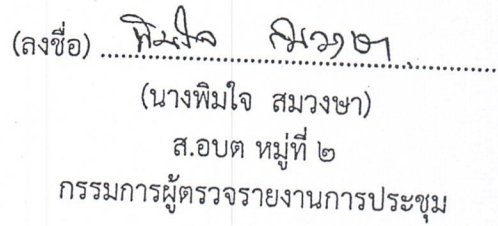 (ลงชื่อ) พิมใจ สมวงษา
(นางพิมใจ สมวงษา)
ส.อบต หมู่ที่ ๒
กรรมการผู้ตรวจรายงานการประชุม